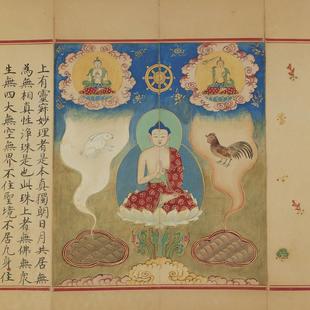 上有靈寐妙理者是本真獨朝日月共居無
為無相真性淨珠是也此珠上者無佛無衆
生無四大無空無界不住聖境不居凡身住